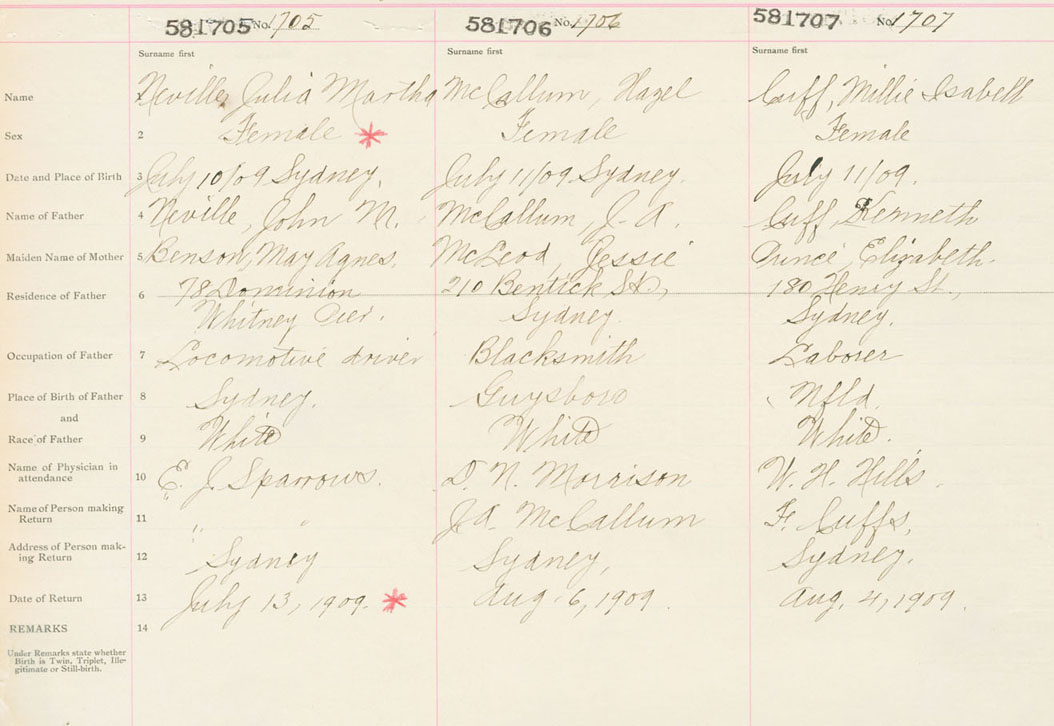 581705 No. 1705 581706 No. 1706 581707 No. 1707
Surname first Surname first Surname first
Name 1 Neville, Julia Martha McCallum, Hazel Cuff, Millie Isabell
Sex 2 Female * Female Female
Date and Place of Birth 3 July 10/09 Sydney. July 11/09 Sydney. July 11/09.
Name of Father 4 Neville, John M. McCallum, J. A. Cuff, Kenneth
Maiden Name of Mother 5 Benson, May Agnes. McLeod, Jessie Prince, Elizabeth.
Residence of Father 6 78 Dominion 210 Bentick St., 180 Henry St.,
Whitney Pier. Sydney. Sydney.
Occupation of Father 7 Locomotive driver Blacksmith Laborer
Place of Birth of Father 8 Sydney. Guysboro Nfld.
and
Race of Father 9 White White White.
Name of Physician in
attendance 10 E. J. Sparrows. D. N. Morrison W. H. Hills.
Name of Person making
Return 11 " " " J. A. McCallum F. Cuffs,
Address of Person mak-
ing Return 12 Sydney Sydney, Sydney.
Date of Return 13 July 13, 1909. * Aug. 6, 1909. Aug. 4, 1909.
REMARKS 14
Under Remarks state whether
Birth is Twin, Triplet, Ille-
gitimate or Still-birth.